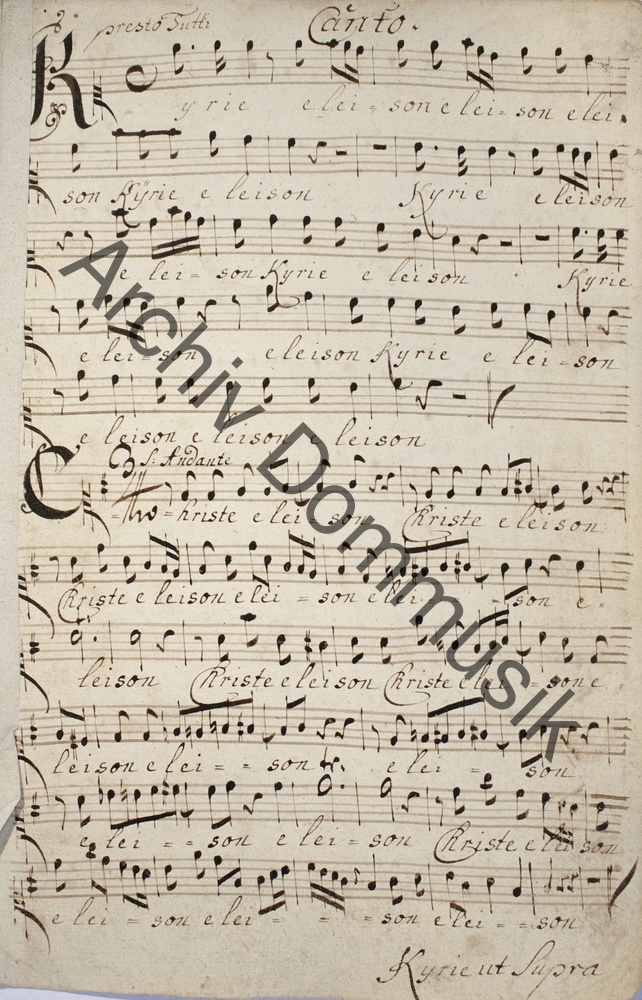 presto Tutti Canto.
Kyrie elei = son elei = son elei =
son Kÿrie eleison Kyrie eleison
elei = son Kyrie eleison Kyrie
elei = son eleison Kyrie elei = son
eleison eleison eleison
S: Andante
Christe elei = son Christe eleison
Christe eleison elei = son elei = son e =
leison Christe eleison Christe elei = son e
leison elei = = son elei = son
elei = = son elei = son Christe eleison
elei = son elei = = = son elei = = son
Kyrie ut Supra
Archiv Dommusik